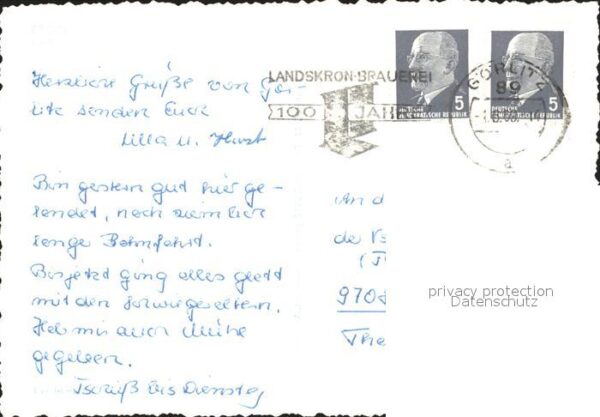 Herzliche Grüße von Gör-
litz senden Euch
Lilla u. Horst
Bin gestern gut hier ge-
landet, nach ziemlich
lange Bahnfahrt.
Bis jetzt ging alles glatt
mit den Schwiegereltern.
Hab mir auch Mühe
gegeben.
Tschüß bis Dienstag
LANDSKRON-BRAUEREI
100 JAH
GÖRLITZ
89
a
5
DEUTSCHE
DEMOKRATISCHE REPUBLIK
5
DEUTSCHE
DEMOKRATISCHE REPUBLIK
An d
de
970
The
privacy protection
Datenschutz